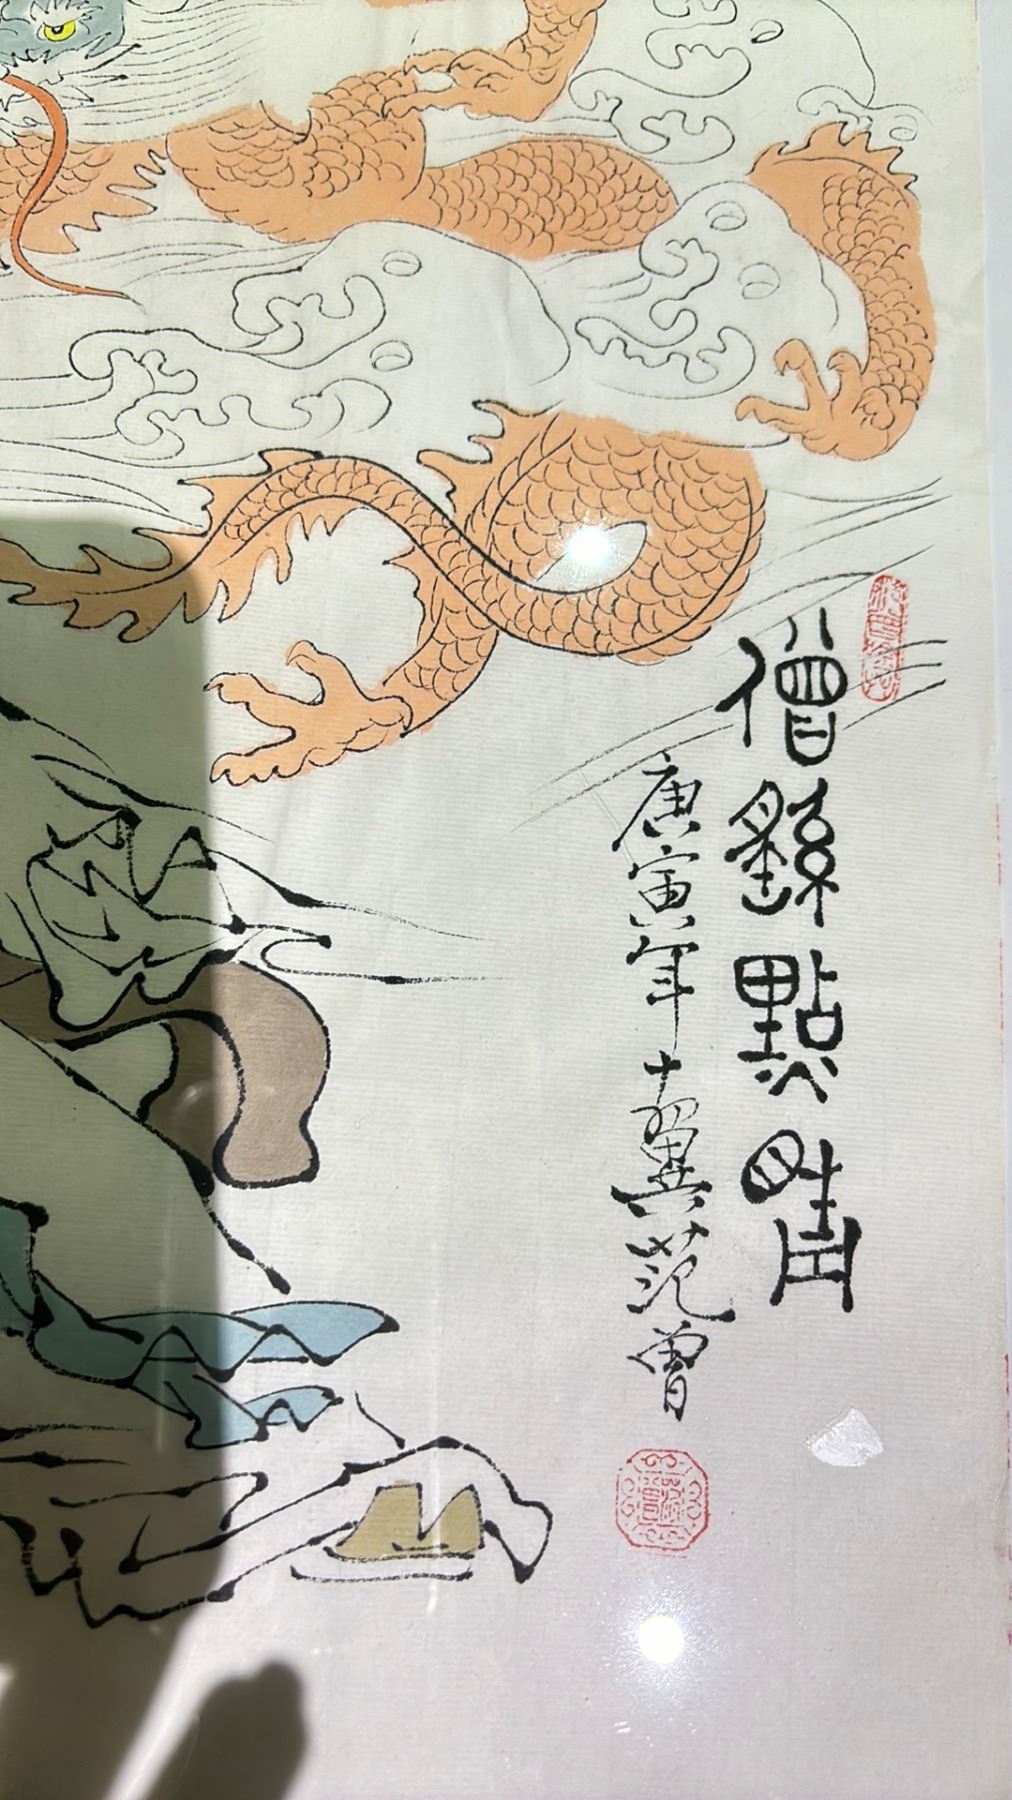 僧繇點睛
庚寅年十翼范曾